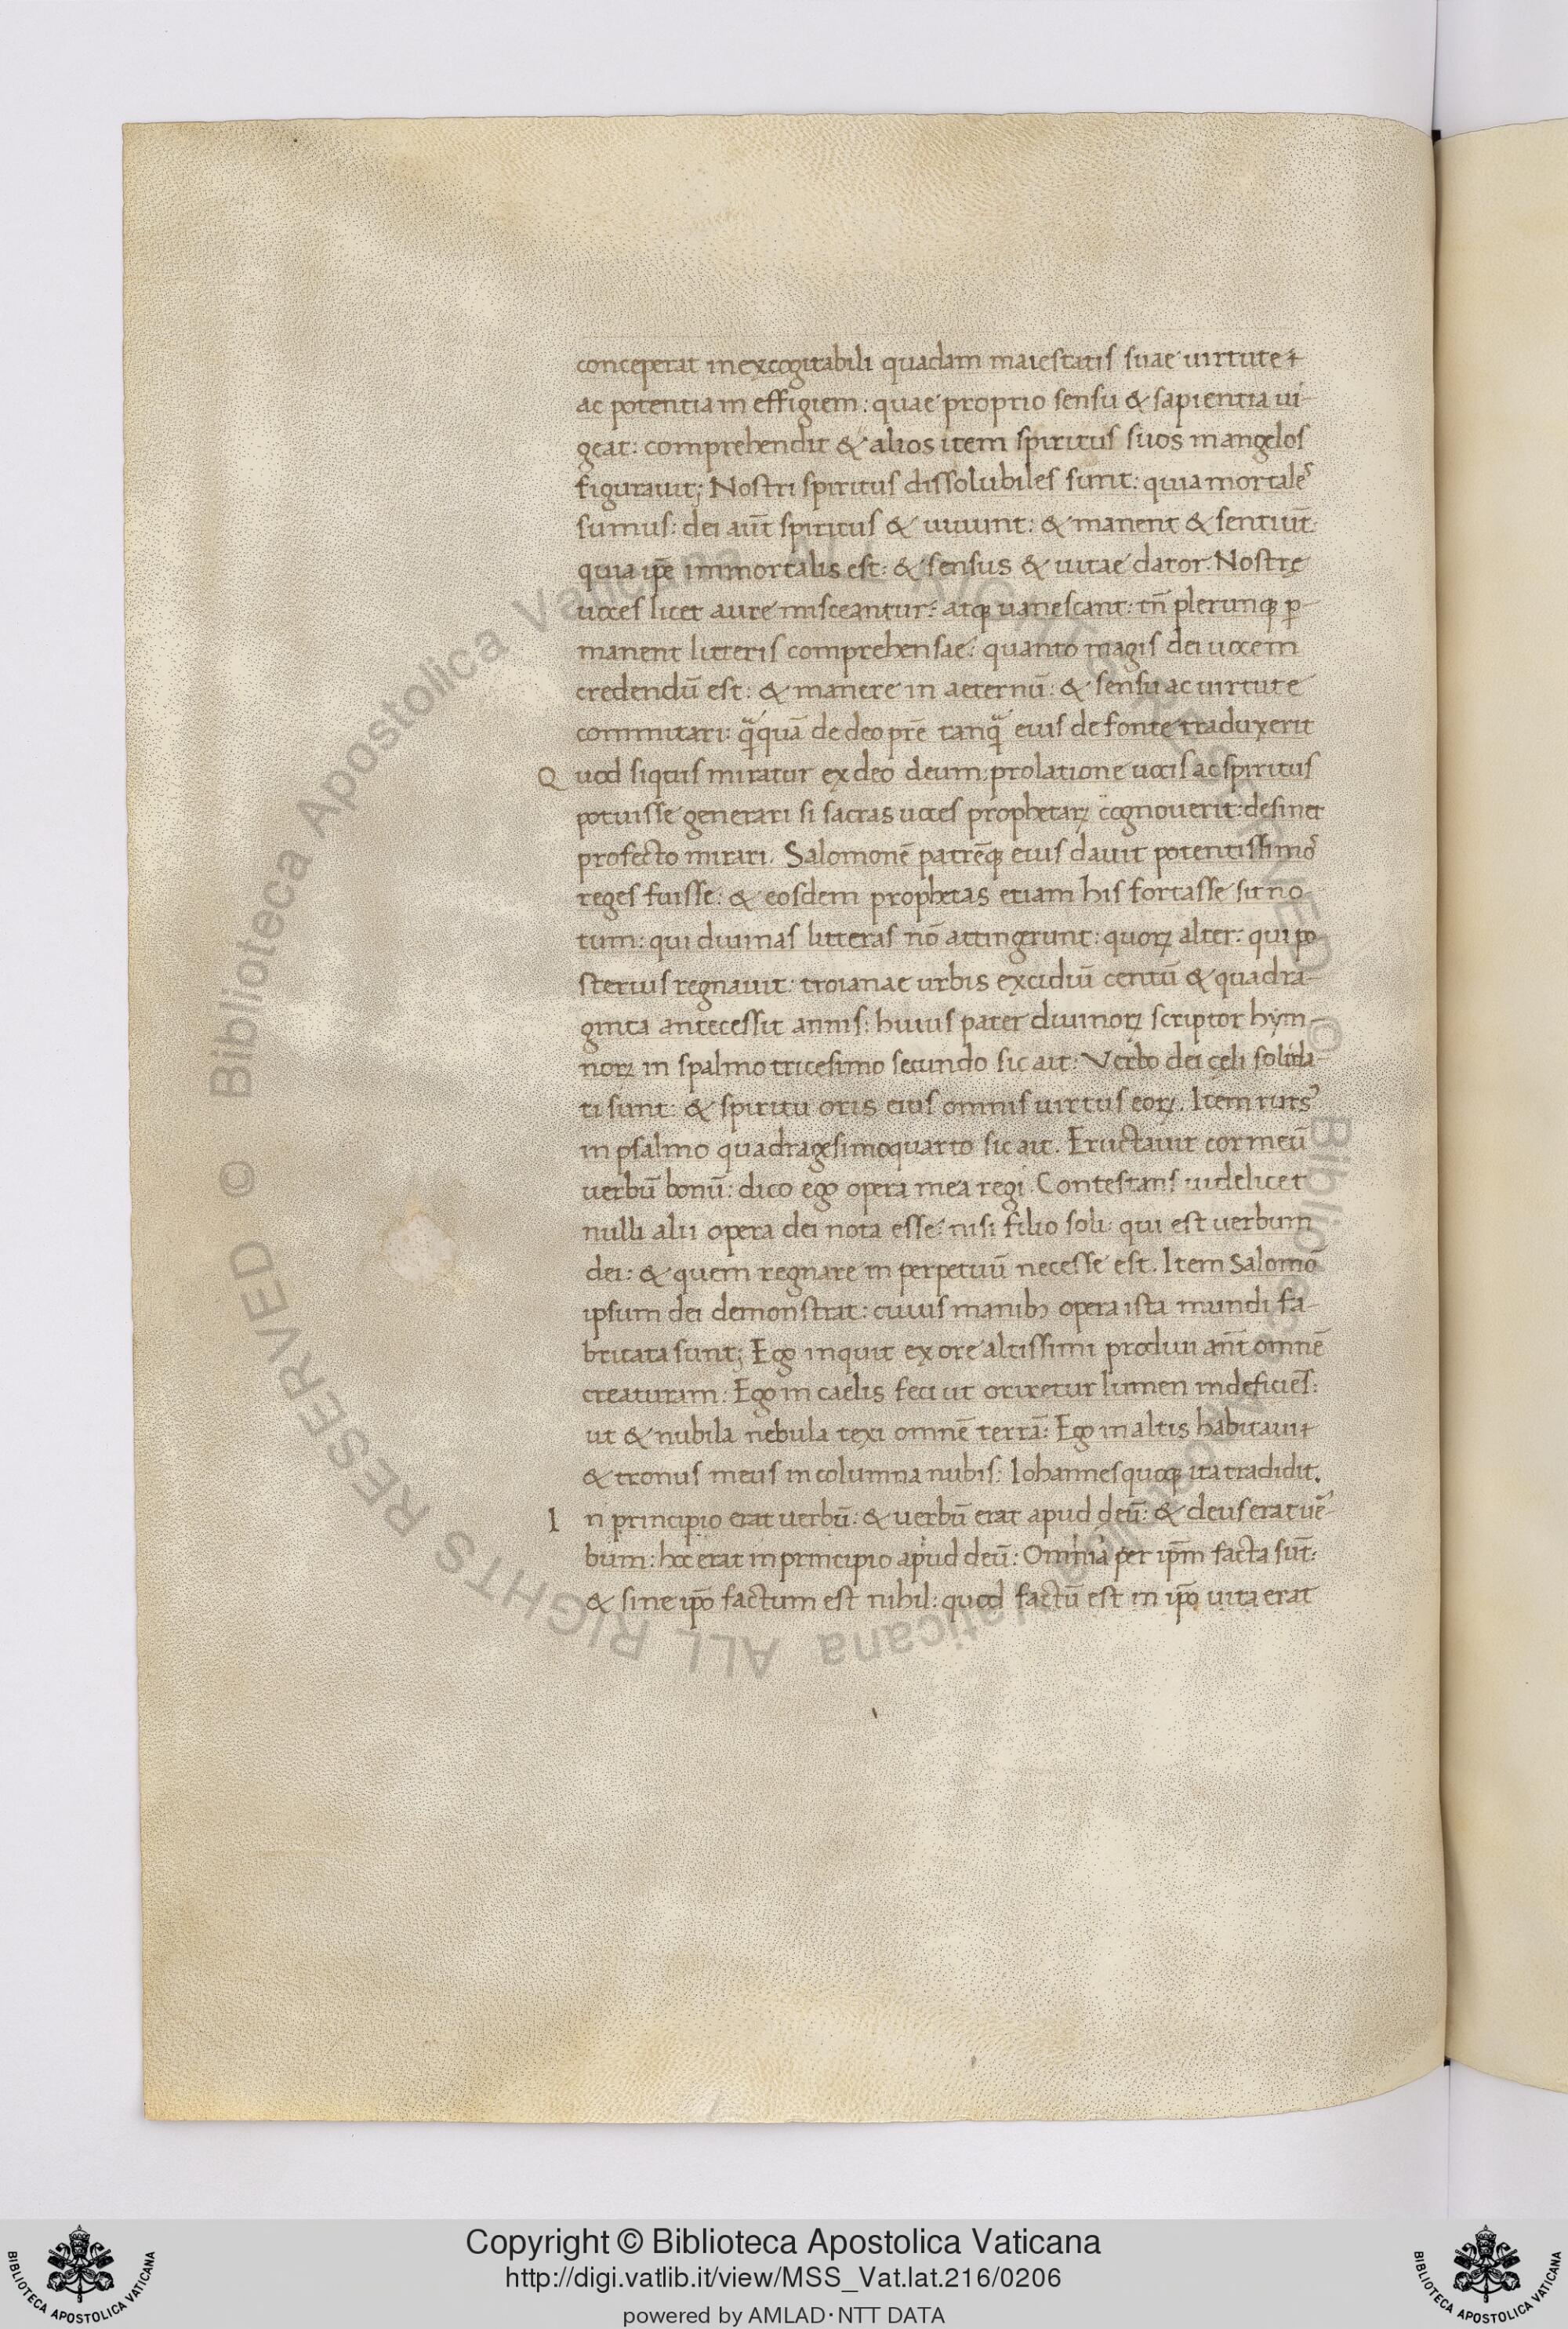 conceperat inexcogitabili quadam maiestatis suae uirtute
ac potentia in effigiem: quae proprio sensu & sapientia ui-
geat: comprehendit & alios item spiritus suos in angelos
figurauit; Nostri spiritus dissolubiles sunt: quia mortales
sumus: dei aūt spiritus & uiuunt: & manent & sentiūt
quia ip̄e immortalis est: & sensus & uitae dator. Nostrę
uoces licet aure misceantur: atq; uanescant: tn̄ plerunq; p-
manent litteris comprehensae: quanto magis dei uocem
credendū est: & manere in aeternū: & sensu ac uirtute
commitari: qāquā de deo pr̄e tanqā eius de fonte traduxerit
Quod siquis miratur ex deo deum: prolatione uocis ac spiritus
potuisse generari si sacras uoces prophetaꝝ cognouerit: desinet
profecto mirari. Salomonē patrēq; eius dauit potentissimos
reges fuisse: & eosdem prophetas etiam his fortasse sit no-
tum: qui diuinas litteras nō attingrunt: quoꝝ alter: qui po
sterius regnauit: troianae urbis excidiū centū & quadra-
ginta antecessit annis: huius pater diuinoꝝ scriptor hym-
noꝝ in spalmo tricesimo secundo sic ait: Verbo dei cęli solida-
ti sunt: & spiritu oris eius omnis uirtus eoꝝ. Item rursꝰ
in psalmo quadragesimoquarto sic ait. Eructauit cor meū
uerbū bonū: dico ego opera mea regi. Contestans uidelicet
nulli alii opera dei nota esse: nisi filio soli: qui est uerbum
dei: & quem regnare in perpetuū necesse est. Item Salomō
ipsum dei demonstrat: cuius manib; opera ista mundi fa-
bricata sunt; Ego inquit ex ore altissimi prodiui an̄t omnē
creaturam: Ego in caelis feci ut oriretur lumen indeficiēs:
ut & nubila nebula texi omnē terrā: Ego in altis habitaui
& tronus meus in columna nubis: Iohannes quoq; ita tradidit.
In principio erat uerbū: & uerbū erat apud deū: & deus erat ue-
bum: hoc erat in principio apud deū: Omnia per ip̄m facta sūt:
& sine ip̄o factum est nihil: quod factū est in ip̄o uita erat
© Biblioteca Apostolica Vaticana ALL RIGHTS RESERVED © Biblioteca Apostolica Vaticana ALL RIGHTS RESERVED
Copyright © Biblioteca Apostolica Vaticana
http://digi.vatlib.it/view/MSS_Vat.lat.216/0206
powered by AMLAD·NTT DATA
BIBLIOTECA APOSTOLICA VATICANA
BIBLIOTECA APOSTOLICA VATICANA